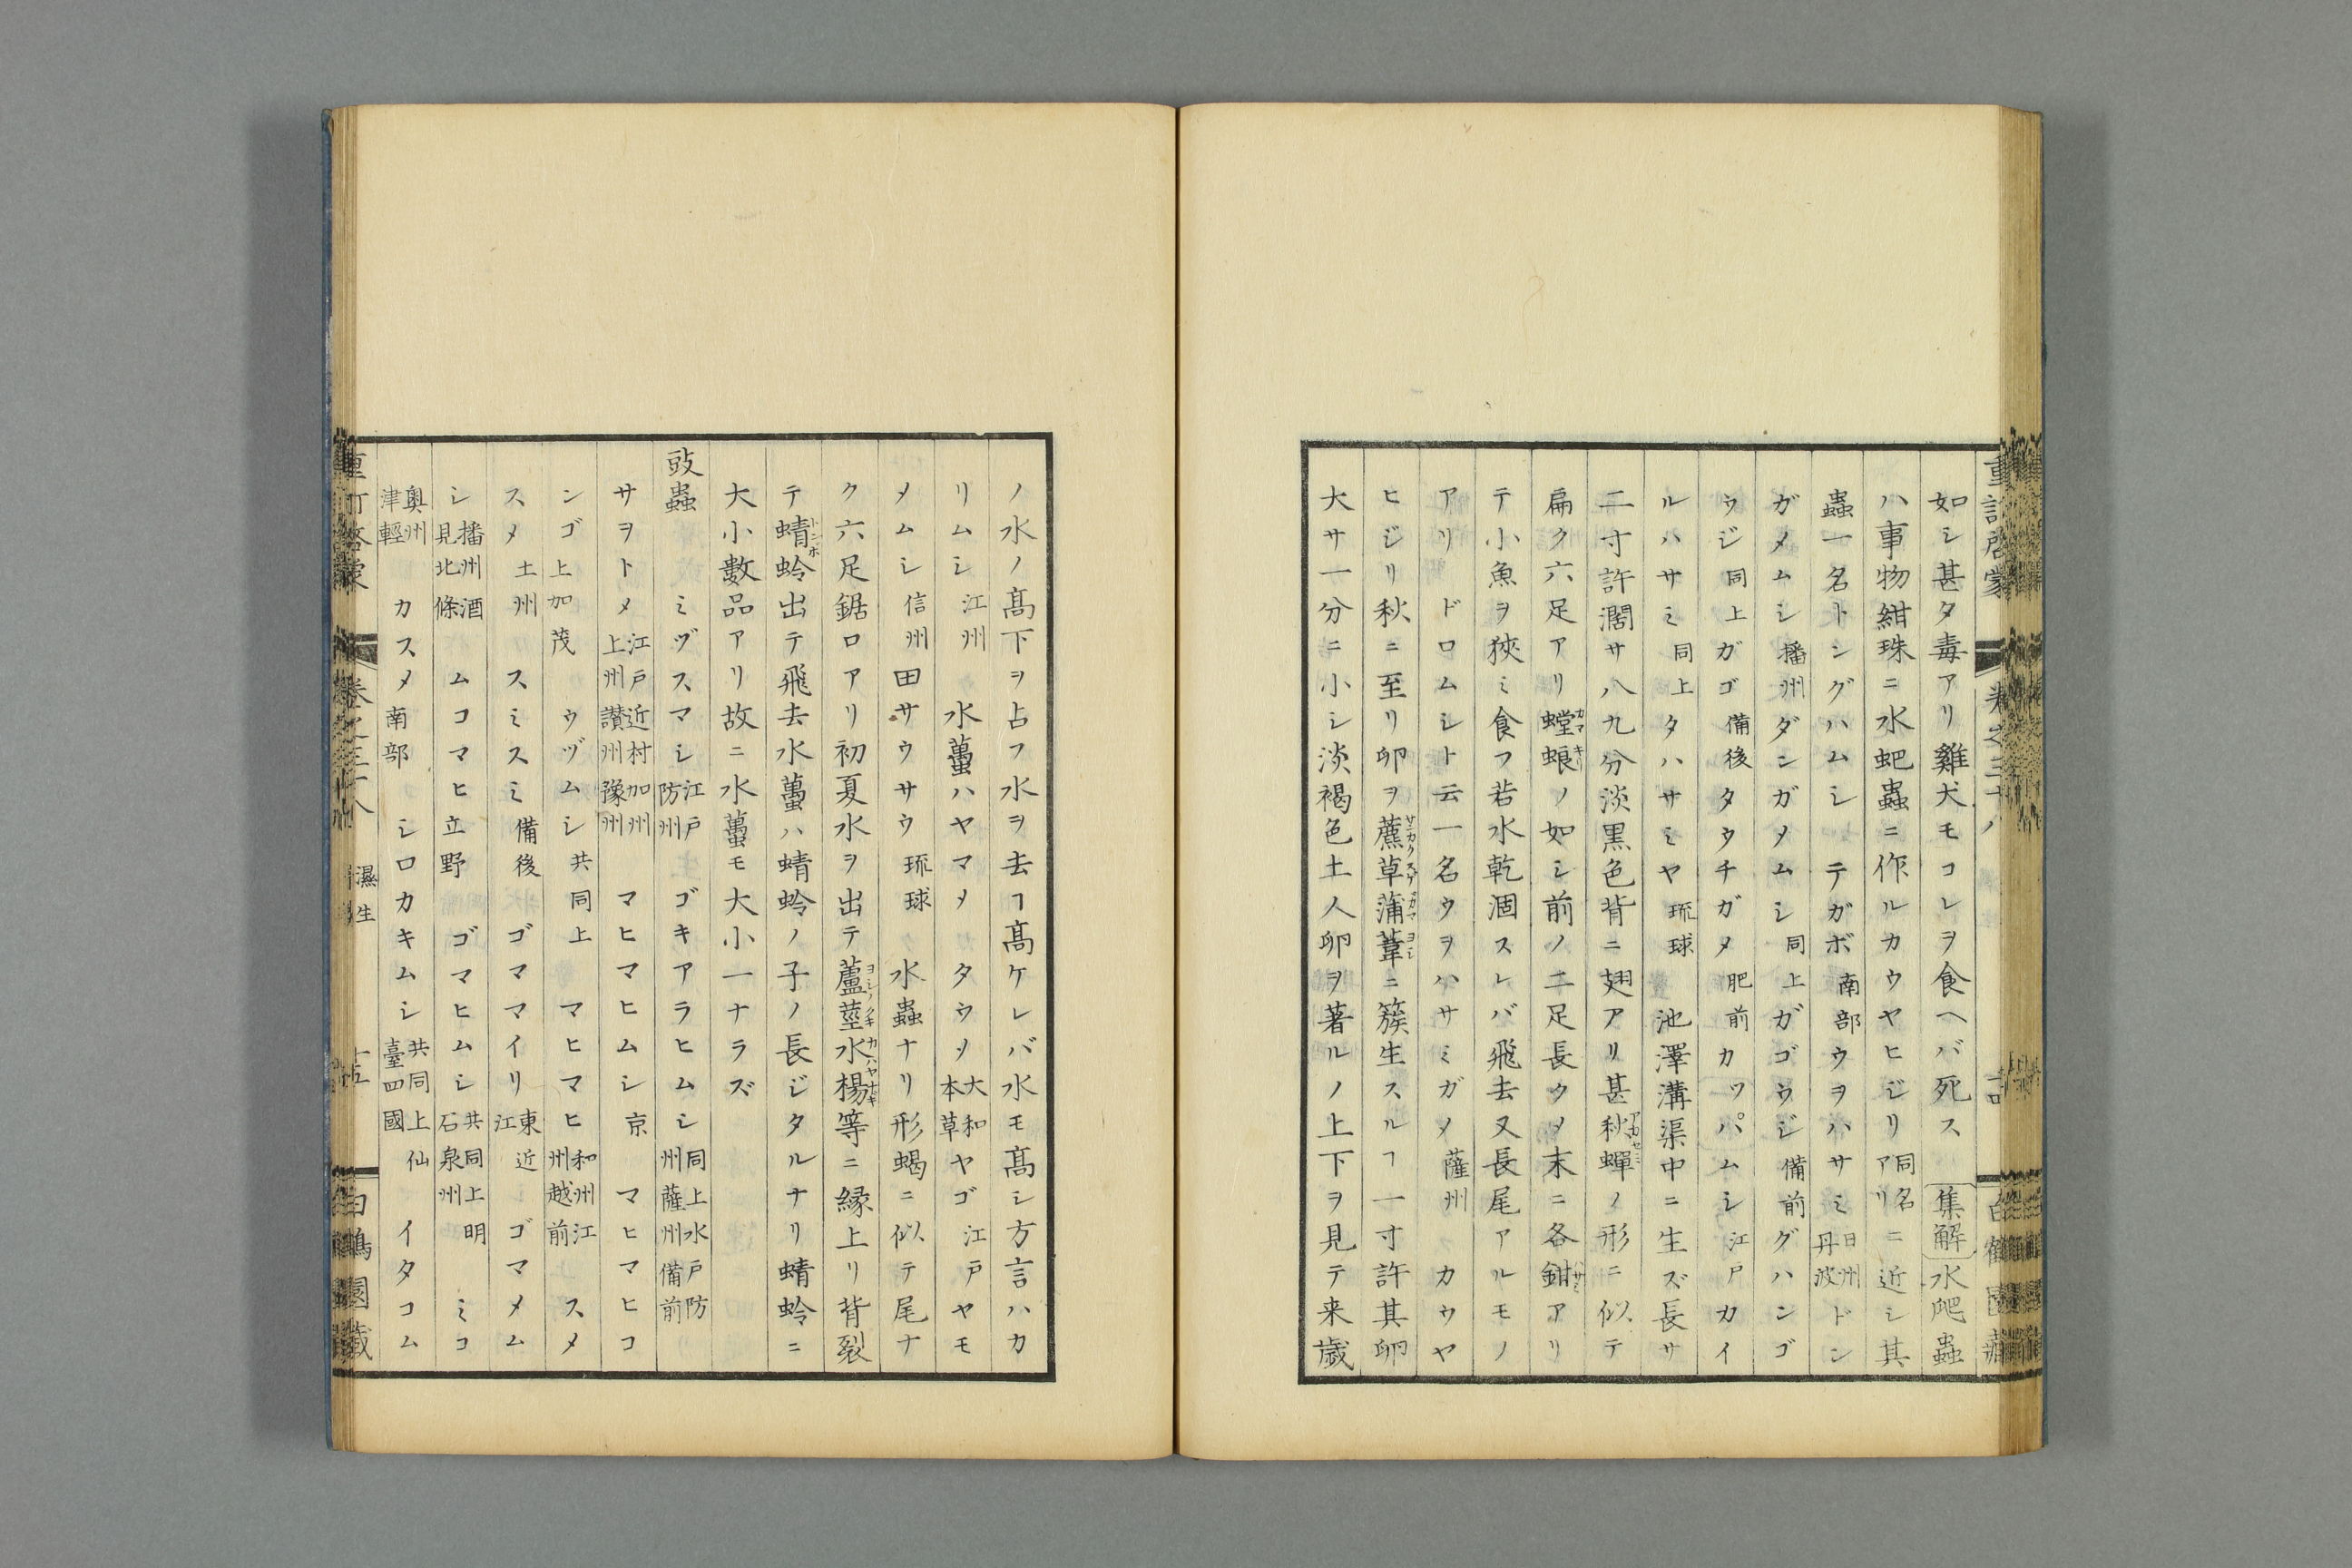 如シ甚タ毒アリ雞犬モコレヲ食ヘバ死ス 集解 水爬蟲
ハ事物紺珠ニ水蚆蟲ニ作ルカウヤヒジリ同名アリニ近シ其
蟲一名トンシグハムシ テガボ南部ウヲハサミ日州丹波ドン
ガメムシ播州ダンガメムシ同上ガゴウジ備前グハンゴ
ウジ同上ガゴ備後タウチガメ肥前カッパムシ江戸カイ
ルハサミ同上タハサミヤ琉球 池澤溝渠中ニ生ズ長サ
二寸許濶サ八九分淡黒色背ニ翅アリ甚秋蟬ノ形ニ似テ
扁ク六足アリ螳蜋ノ如シ前ノ二足長クメ末ニ各鉗アリ
テ小魚ヲ狹ミ食フ若水乾涸スレバ飛去又長尾アルモノ
アリ ドロムシト云一名ウヲハサミガメ薩州 カウヤ
ヒジリ秋ニ至リ卵ヲ藨草蒲葦ニ簇生スルヿ一寸許其卵
大サ一分ニ小シ淡褐色土人卵ヲ著ルノ上下ヲ見テ来歳
ノ水ノ髙下ヲ占フ水ヲ去ヿ髙ケレバ水モ髙シ方言ハカ
リムシ江州 水蠆ハヤマメ タウメ大和本草ヤゴ江戸ヤモ
メムシ信州田サウサウ琉球 水蟲ナリ形蝎ニ似テ尾ナ
ク六足鋸口アリ初夏水ヲ出テ蘆莖水楊等ニ縁上リ背裂
テ蜻蛉出テ飛去水蠆ハ蜻蛉ノ子ノ長ジタルナリ蜻蛉ニ
大小數品アリ故ニ水蠆モ大小一ナラズ
豉蟲 ミヅスマシ江戸防州 ゴキアラヒムシ同上水戸防州薩州備前
サヲトメ江戸近村加州上州讃州豫州 マヒマヒムシ京 マヒマヒコ
ンゴ上加茂 ウヅムシ共同上 マヒマヒ和州江州越前 スメ
スメ土州 スミスミ備後 ゴママイリ東近江 ゴマメム
シ播州酒見北條 ムコマヒ立野 ゴマヒムシ共同上明石泉州 ミコ
奥州津輕 カスメ南部 シロカキムシ共同上仙臺四國 イタコム